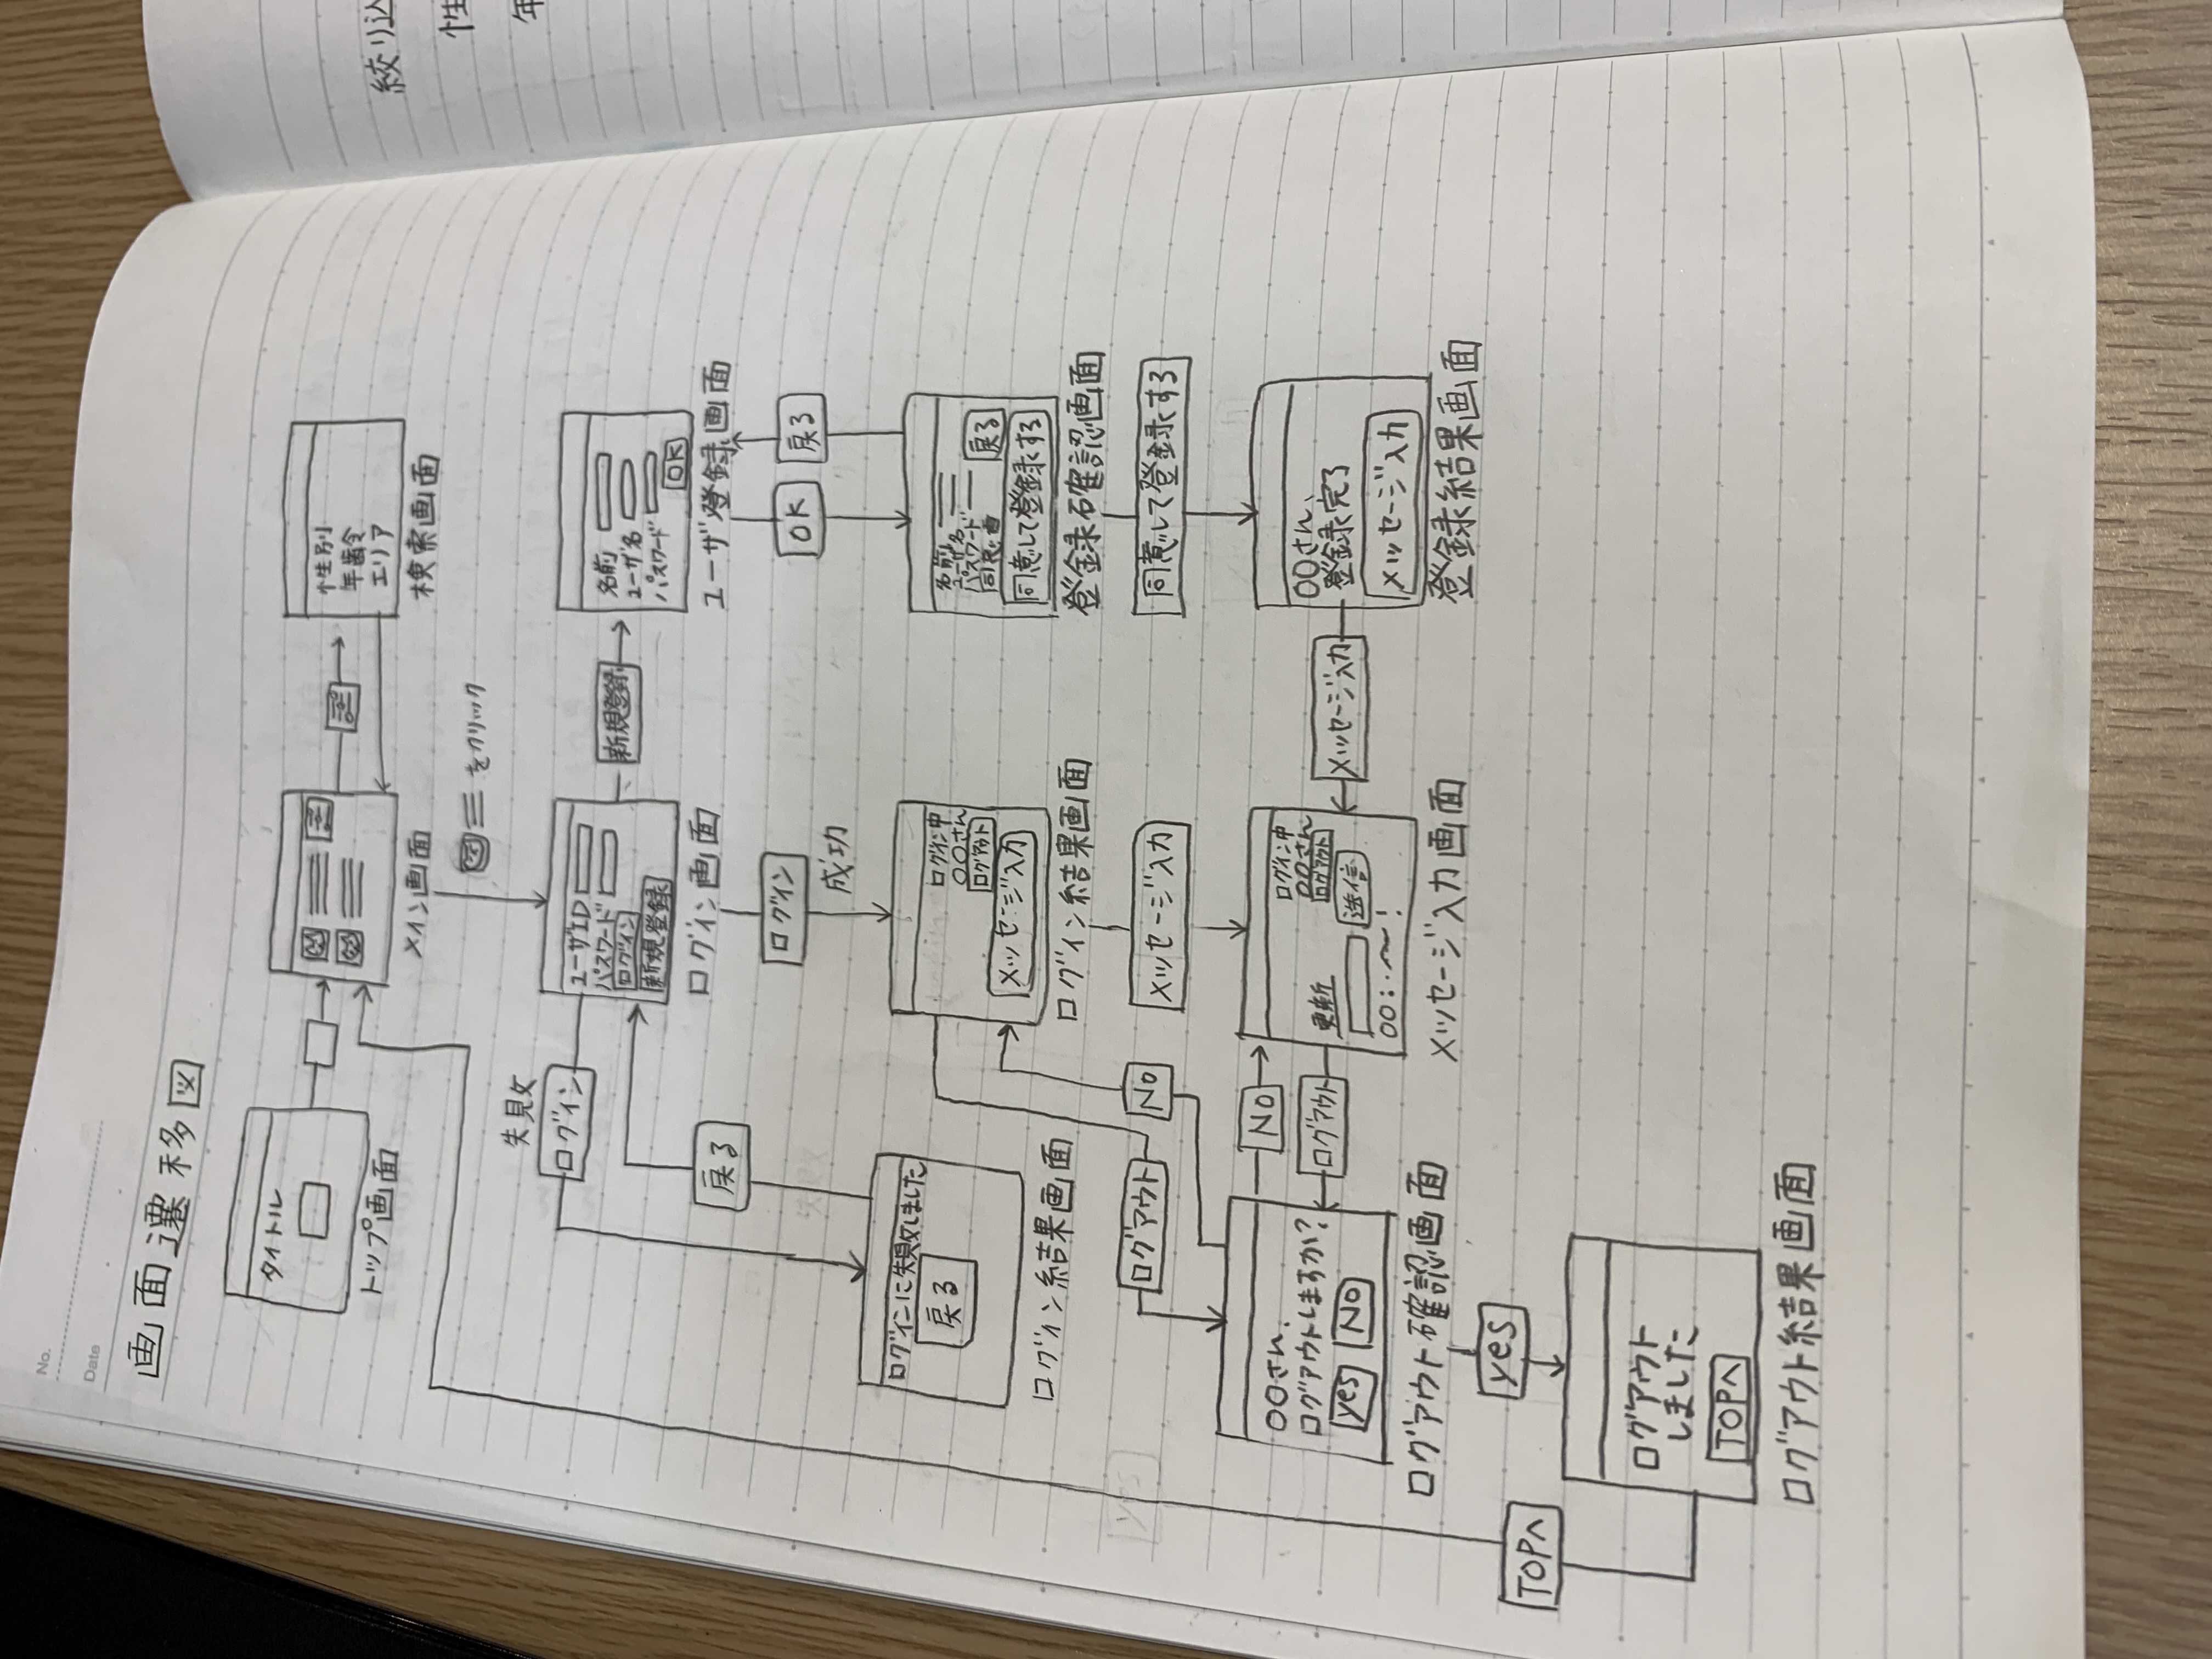 No.
Date
画面遷移図
タイトル
トップ画面
メイン画面
性別
年齢
エリア
検索画面
をクリック
失敗
ログイン
ユーザID
パスワード
ログイン
新規登録
ログイン画面
新規登録
名前
ユーザ名
パスワード
OK
ユーザ登録画面
戻る
ログイン
成功
OK
戻る
ログインに失敗しました
戻る
ログイン結果画面
ログイン中
〇〇さん
ログアウト
メッセージ入力
ログイン結果画面
名前
ユーザ名
パスワード
戻る
同意して登録する
登録確認画面
ログアウト
NO
メッセージ入力
同意して登録する
〇〇さん、
ログアウトしますか?
yes NO
ログアウト確認画面
NO
ログアウト
ログイン中
〇〇さん
ログアウト
更新
送信
〇〇:・・〜!
メッセージ入力画面
メッセージ入力
〇〇さん、
登録完了
メッセージ入力
登録結果画面
yes
TOPへ
ログアウト
しました
TOPへ
ログアウト結果画面
絞り込
性
年